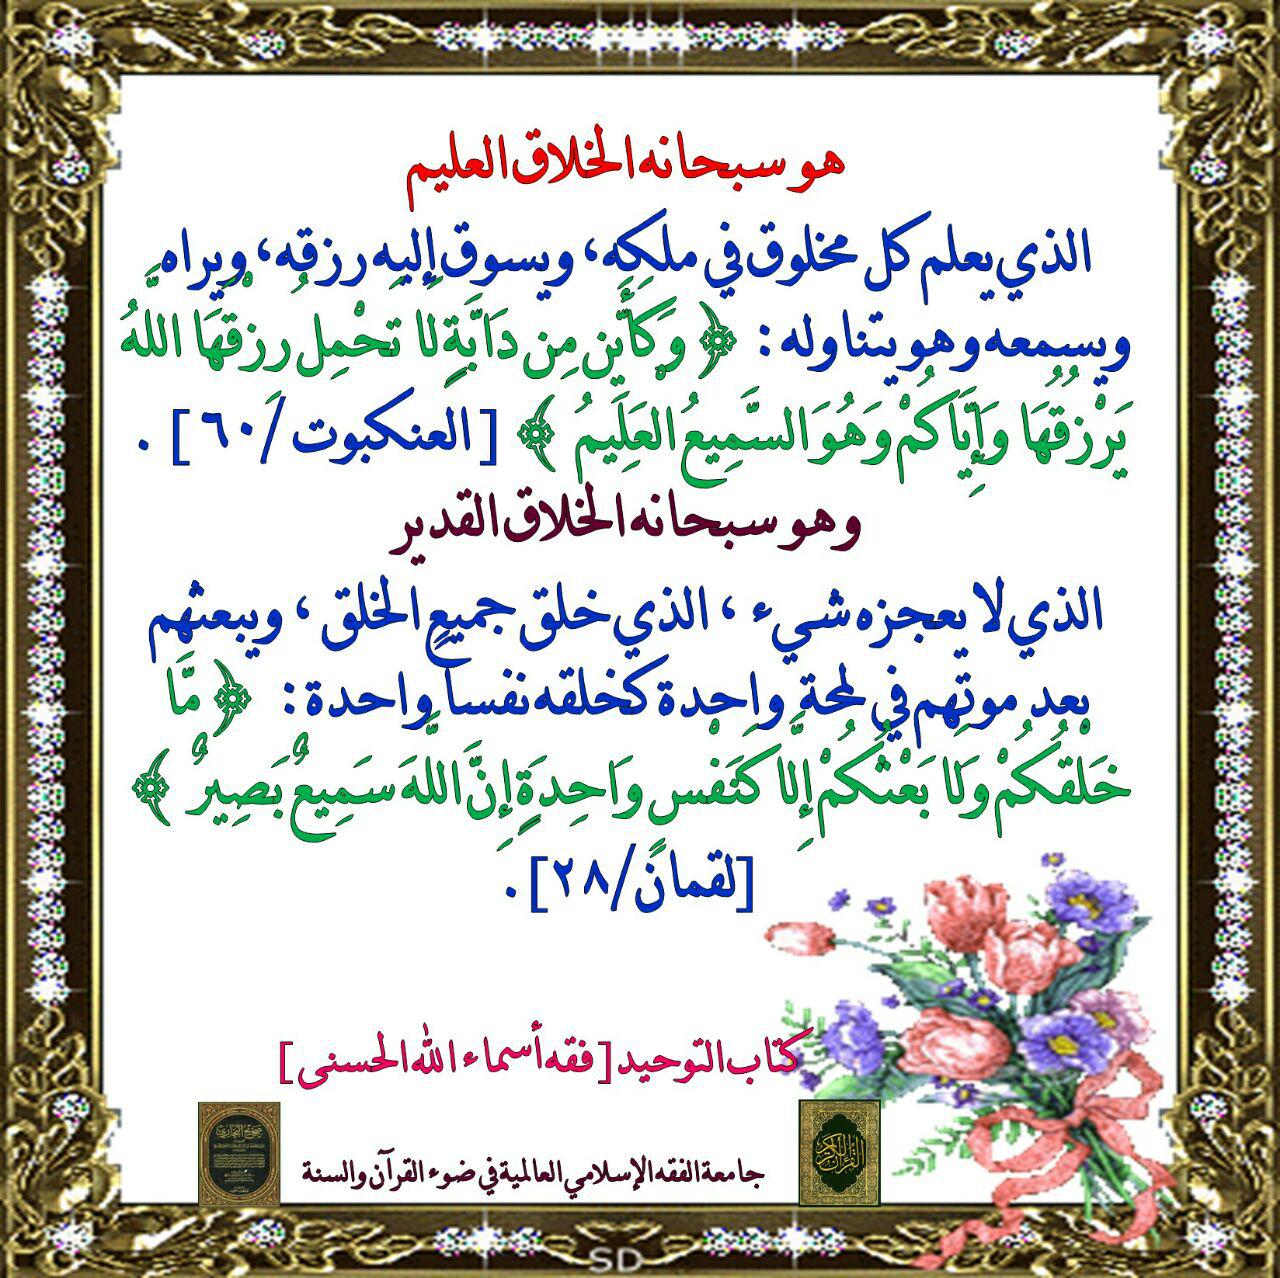 هو سبحانه الخلاق العليم
الذي يعلم كل مخلوق في ملكه، ويسوق إليه رزقه، ويراه
ويسمعه وهو يتناوله: ﴿ وَكَأَيِّن مِن دَابَّةٍ لَا تَحْمِلُ رِزْقَهَا اللَّهُ
يَرْزُقُهَا وَإِيَّاكُمْ وَهُوَ السَّمِيعُ العَلِيمُ ﴾ [العنكبوت/٦٠] .
وهو سبحانه الخلاق القدير
الذي لا يعجزه شيء ، الذي خلق جميع الخلق ، ويبعثهم
بعد موتهم في لمحة واحدة كخلقه نفسا واحدة: ﴿ مَّا
خَلْقُكُمْ وَلَا بَعْثُكُمْ إِلَّا كَنَفْسٍ وَاحِدَةٍ إِنَّ اللَّهَ سَمِيعٌ بَصِيرٌ ﴾
[لقمان/٢٨].
كتاب التوحيد [فقه أسماء الله الحسنى]
صحيح البخاري
القرآن الكريم
جامعة الفقه الإسلامي العالمية في ضوء القرآن والسنة
SD